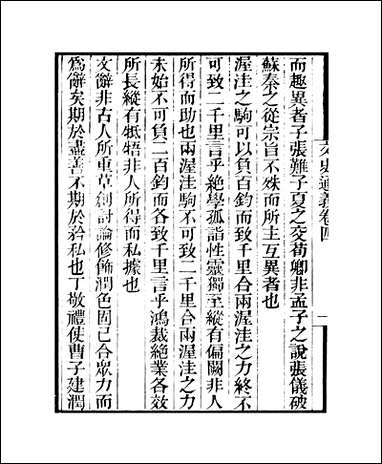 而趣異者子張難子夏之交荀卿非孟子之說張儀破
蘇秦之從宗旨不殊而所主互異者也
渥洼之駒可以負百鈞而致千里合兩渥洼之力終不
可致二千里言乎絶學孤詣性靈獨至縱有偏闕非人
所得而助也兩渥洼駒不可致二千里合兩渥洼之力
未始不可負二百鈞而各致千里言乎鴻裁絶業各效
所長縱有牴牾非人所得而私據也
文辭非古人所重草創討論修飾潤色固已合眾力而
爲辭矣期於盡善不期於矜私也丁敬禮使曹子建潤
文史通義卷四
一